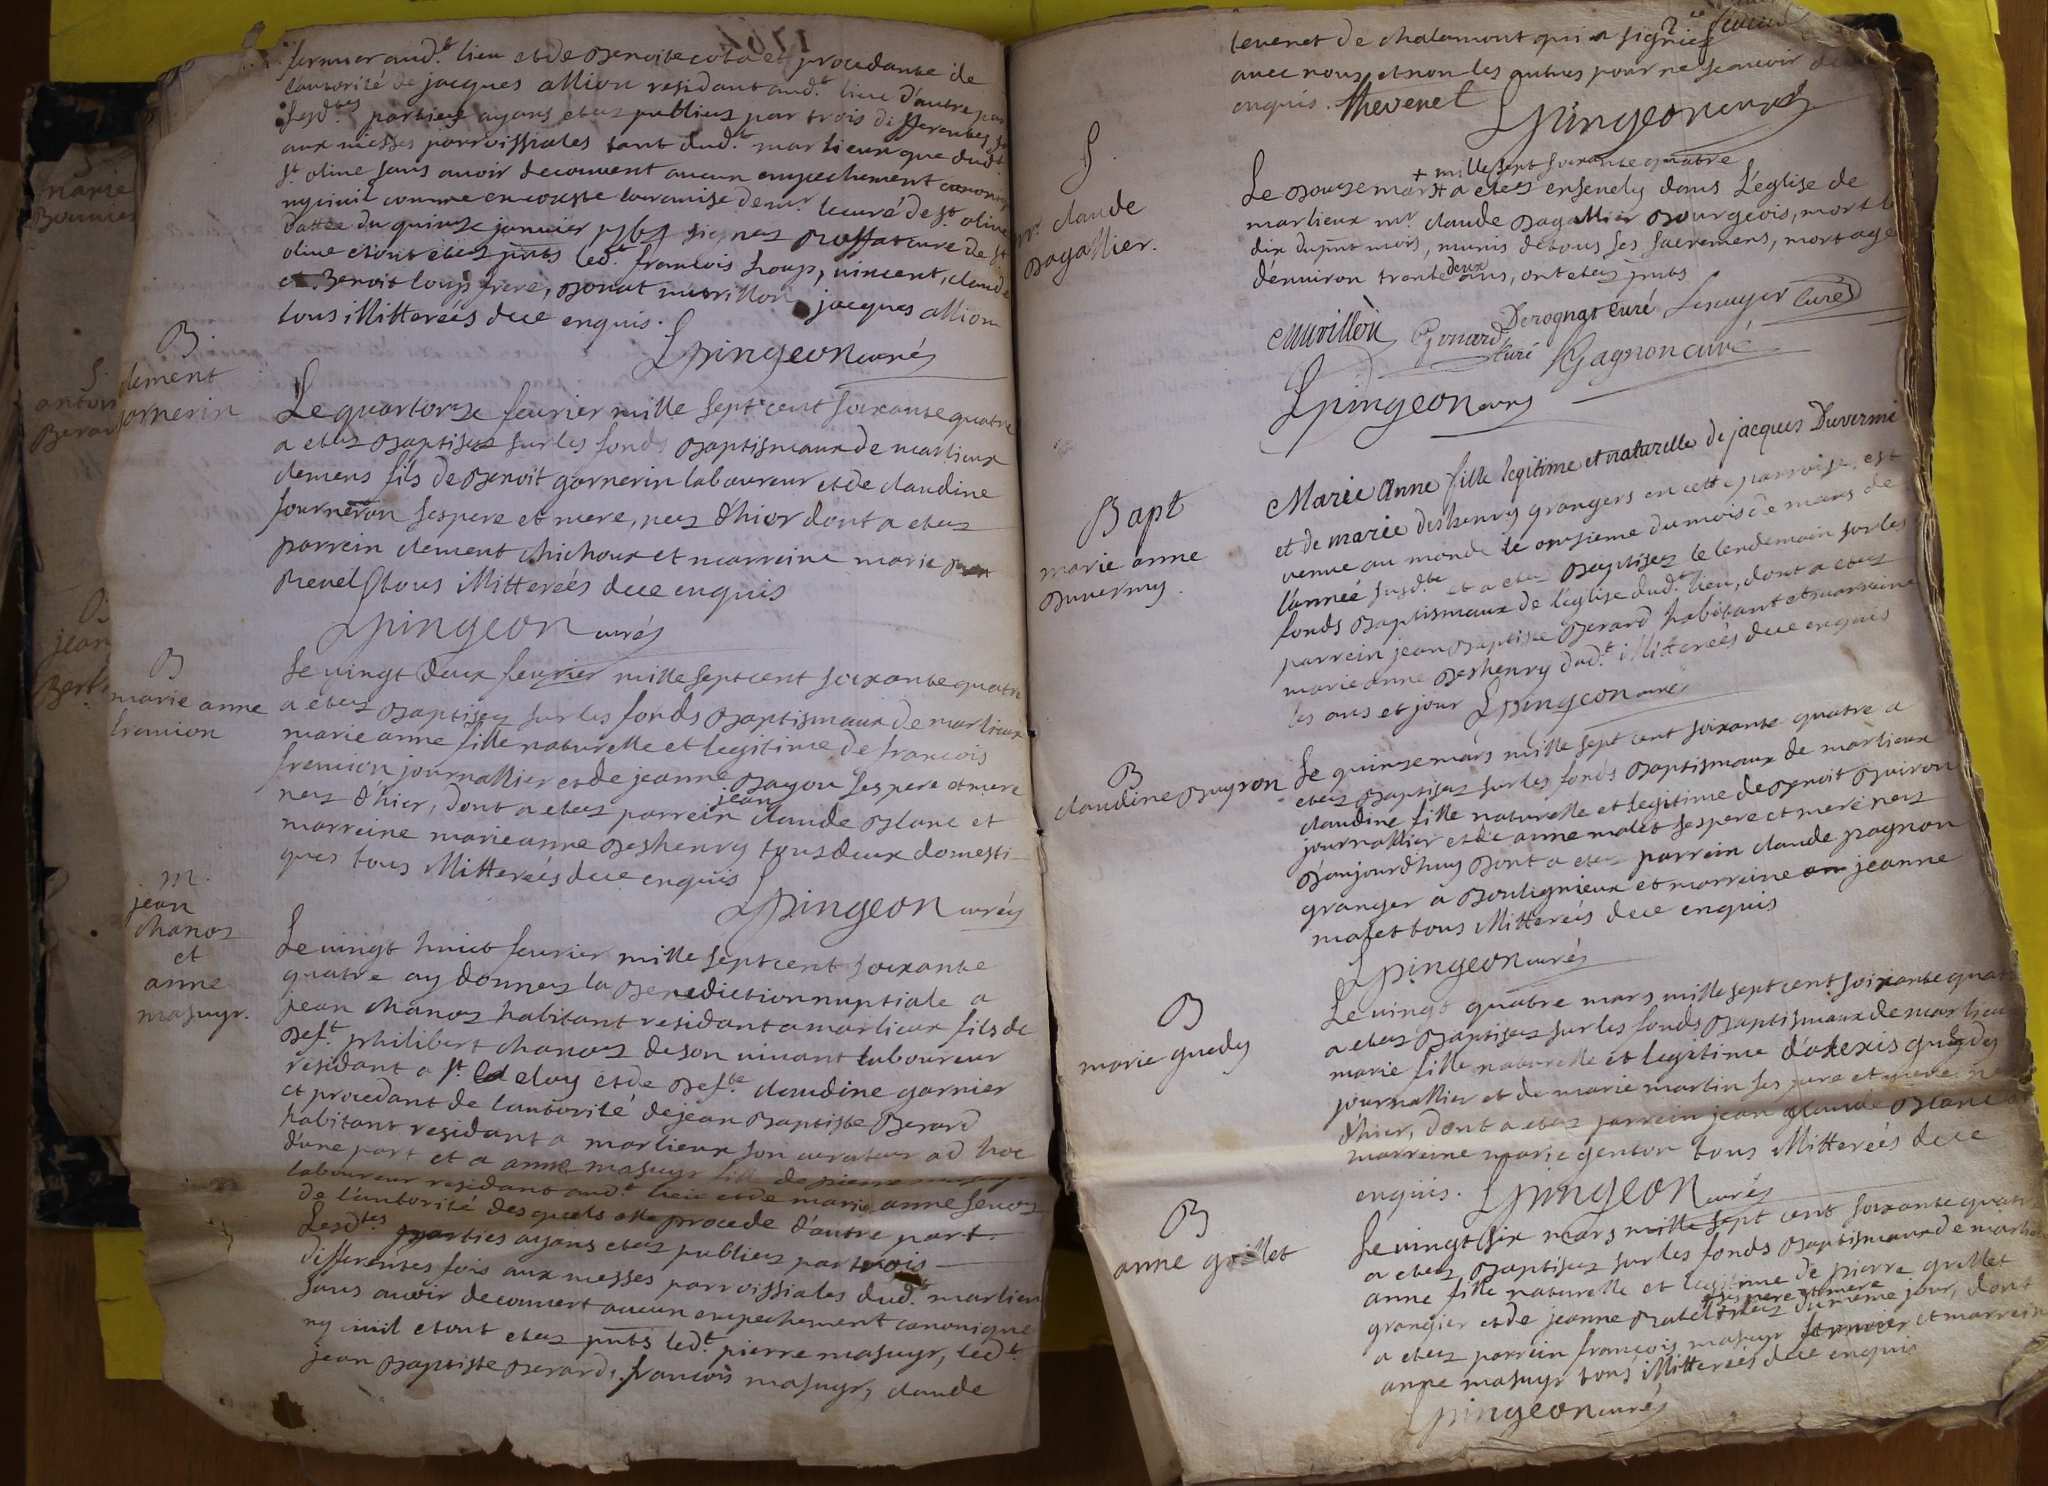 fermier aud.t lieu et de Benoite cota et procedante de
l'autorité de jacques allion residant aud.t lieu d'autre par
Lesd.tes parties ayans etez publiez par trois differentes
aux messes parroissiales tant dud.t marlieux que dud.t
st oline sans avoir decouvert aucun empechement canoniq
ny civil comme en conste la remise de mr le curé de st oline
dattée du quinze janvier 1764 signez
oline et ont etez pnts led.t francois Loup, vincent, claude
et Benoit loup frere, Donat murillon jacques allion
tous illitterés de ce enquis.
Spingeon curés
B.
clement
garnerin
Le quatorze fevrier mille sept cent soixante quatre
a etez Baptisez sur les fonds Baptismaux de marlieux
clemens fils de Benoit garnerin laboureur et de claudine
fourneron ses pere et mere, nez d'hier dont a etez
parrein clement chichoux et marreine marie
Revel tous illitterés de ce enquis
Spingeon curés
B
marie anne
fremion
Le vingt deux fevrier mille sept cent soixante quatre
a etez Baptisez sur les fonds Baptismaux de marlieux
marie anne fille naturelle et legitime de francois
fremion journallier et de jeanne Bayon ses pere et mere
nez d'hier, dont a etez parrein jean claude Blanc et
marreine marie anne Deshenry tous deux domesti-
ques tous illitterés de ce enquis
Spingeon curés
m.
jean
chanoz
et
anne
masuyr.
Le vingt huict fevrier mille sept cent soixante
quatre ay donnez la Benediction nuptiale a
jean chanoz habitant residant a marlieux fils de
Def.t philibert chanoz de son vivant laboureur
residant a st eloy et de Def.te claudine garnier
et procedant de l'autorité de jean Baptiste Berard
habitant residant a marlieux son curateur ad hoc
d'une part et a anne masuyr fille de pierre masuyr
laboureur residant aud.t lieu et de marie anne
de l'autorité desquels elle procede d'autre part.
Lesd.tes parties ayans etez publiez par trois
differentes fois aux messes parroissiales dud.t marlieu
sans avoir decouvert aucun empechement canonique
ny civil et ont etez pnts led.t pierre masuyr, led.t
jean Baptiste Berard, francois masuyr, claude
tevenet de chalamont qui a signez
avec nous et non les autres pour ne scavoir de
enquis. Thevenet Spingeon curés
S.
mr. claude
Dagallier.
Le Douze mars + mille sept soixante quatre a etez ensevely dans L'eglise de
marlieux mr claude Dagallier Bourgeois, mort le
dix du pnt mois, munis de tous ses sacremens, mort age
d'environ trente deux ans, ont etez pnts
Murillon Gonard curé Derognat curé Lesuyer curé
Spingeon curés Gagnon curé
Bapt
marie anne
Duvermy.
Marie Anne fille legitime et naturelle de jacques Duvermi
et de marie deshenry grangers en cette parroise, est
venue au monde le onsieme du mois de mars de
l'année susd.te et a etez Baptisez le lendemain sur les
fonds Baptismaux de l'eglise dud.t lieu, dont a etez
parrein jean Baptiste Berard habitant et marreine
marie anne Deshenry dud.t illitterés de ce enquis
les ans et jour Spingeon curés
B
claudine Buyron
Le quinze mars mille sept cent soixante quatre a
etez Baptisez sur les fonds Baptismaux de marlieux
claudine fille naturelle et legitime de Benoit Buiron
journallier et de anne malet ses pere et mere nez
D'aujourd'huy Dont a etez parrein claude pagnon
granger a Bouligneux et marreine jeanne
malet tous illitterés de ce enquis
Spingeon curés
B
marie guedy
Le vingt quatre mars mille sept cent soixante quatre
a etez Baptisez sur les fonds Baptismaux de marlieu
marie fille naturelle et legitime d'alexis guedy
journallier et de marie martin ses pere et mere nez
d'hier, dont a etez parrein jean claude Blanc et
marreine marie genton tous illitterés de ce
enquis. Spingeon curés
B
anne grillet
Le vingt six mars mille sept cent soixante quatre
a etez Baptisez sur les fonds Baptismaux de marlieu
anne fille naturelle et legitime de pierre grillet
grangier et de jeanne Ratel ses pere et mere nez du meme jour, dont
a etez parrein francois masuyr fermier et marrein
anne masuyr tous illitterés de ce enquis
Spingeon curés